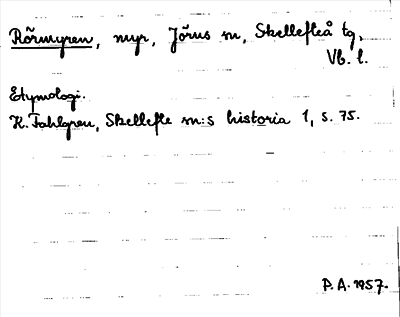 Rörmyren, myr, Jörns sn, Skellefteå tg,
Vb. l.
Etymologi.
K. Fahlgren, Skellefte sn:s historia 1, s. 75.
P. A. 1957.